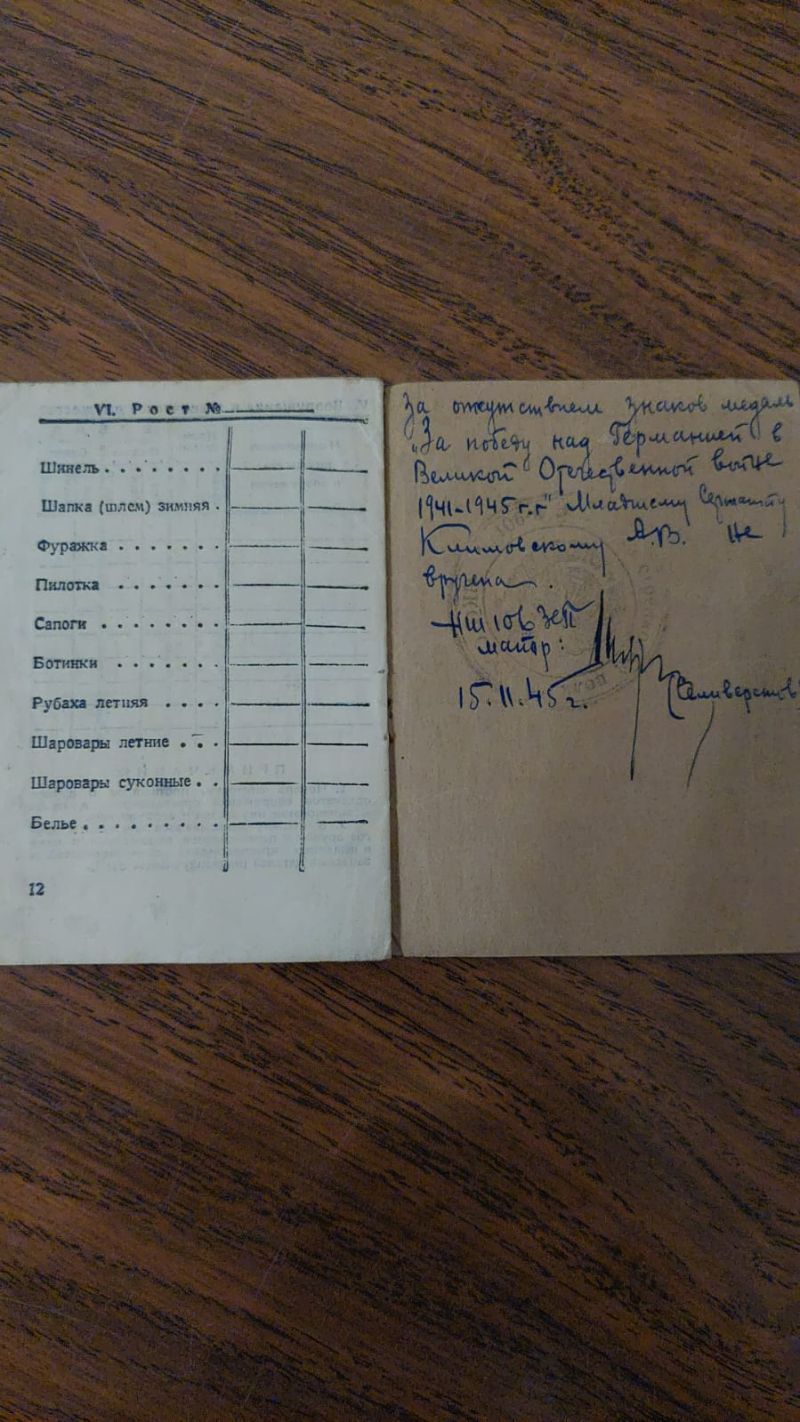 VI. Рост №
Шинель
Шапка (шлем) зимняя
Фуражка
Пилотка
Сапоги
Ботинки
Рубаха летняя
Шаровары летние
Шаровары суконные
Белье
12
За отсутствием знаков медаль
"За победу над Германией в
Великой Отечественной войне
1941-1945 г.г." Младшему Сержанту
Климовскому А.В. не
вручена.
майор:
15.11.45 г.
(Селиверстов